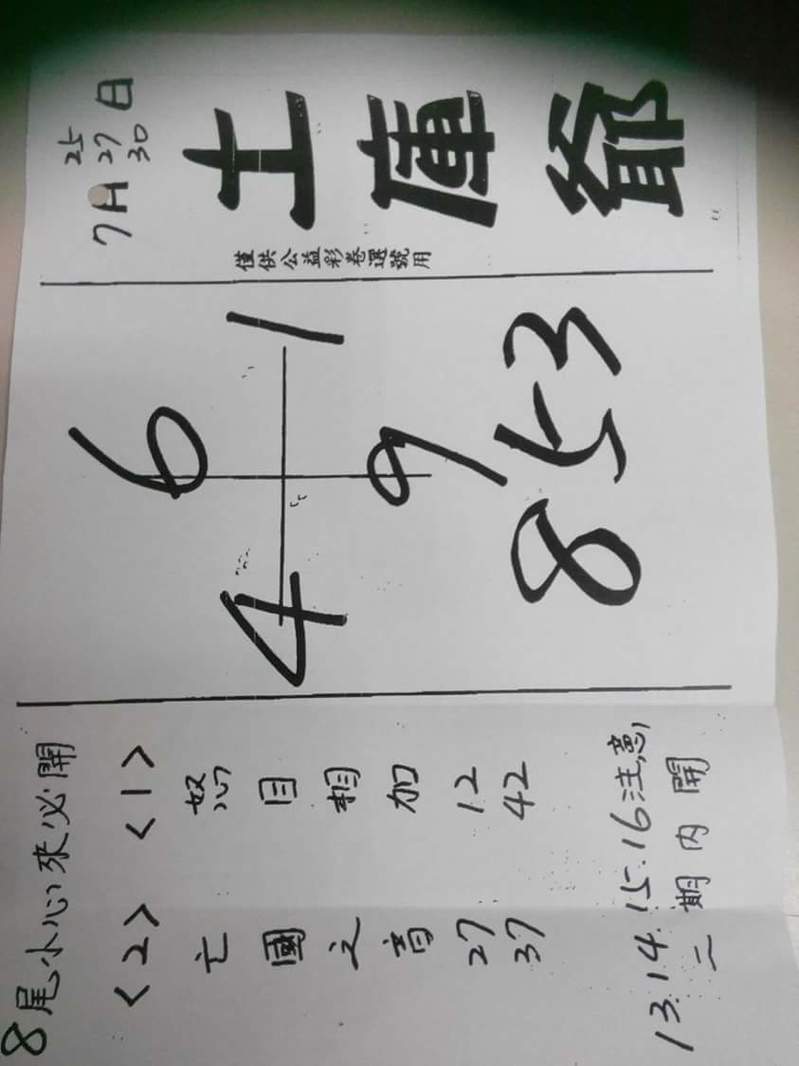 土庫爺
僅供公益彩卷選號用
7月25 27 30日
6
4 1
9
853
8尾小心來必開
<1>
怒目相加
12
42
<2>
亡國之音
27
37
13.14.15.16注意
二期內開